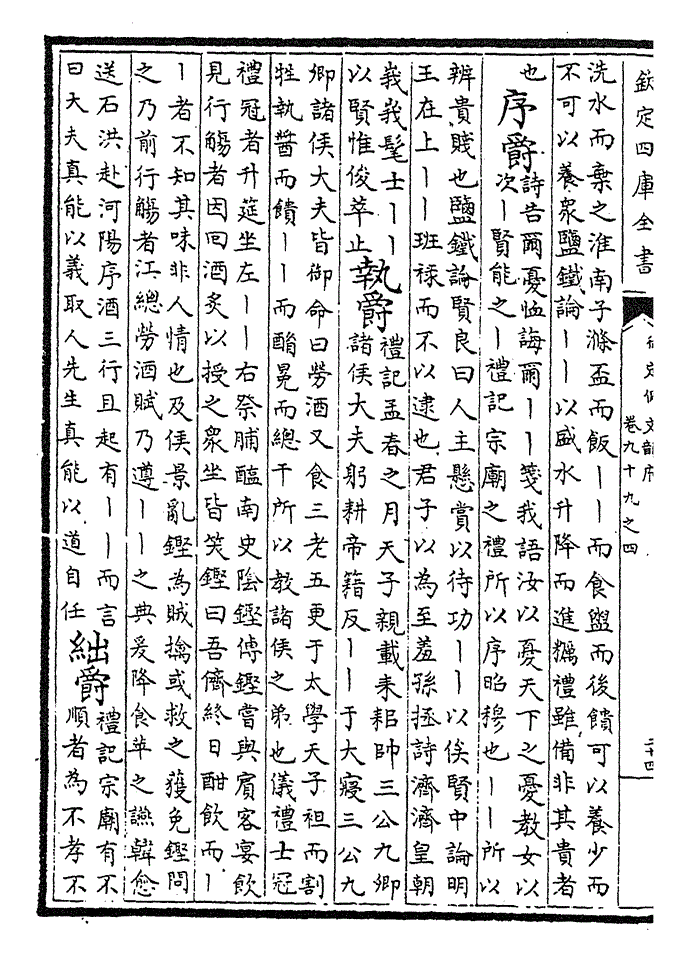 欽定四庫全書
御定佩文韻府
卷九十九之四
二十四
洗水而棄之淮南子滌盃而飯丨丨而食盥而後饋可以養少而
不可以養衆鹽鐵論丨丨以盛水升降而進糲禮雖備非其貴者
也
序爵
詩告爾憂恤誨爾丨丨箋我語汝以憂天下之憂教女以
次丨賢能之丨禮記宗廟之禮所以序昭穆也丨丨所以
辨貴賤也鹽鐵論賢良曰人主懸賞以待功丨丨以俟賢中論明
王在上丨丨班禄而不以逮也君子以為至羞孫拯詩濟濟皇朝
峩峩髦士丨丨
以賢惟俊萃止
執爵
禮記孟春之月天子親載耒耜帥三公九卿
諸侯大夫躬耕帝籍反丨丨于大寢三公九
卿諸侯大夫皆御命曰勞酒又食三老五更于太學天子袒而割
牲執醬而饋丨丨而酳冕而總干所以教諸侯之弟也儀禮士冠
禮冠者升筵坐左丨丨右祭脯醢南史陰鏗傳鏗嘗與賓客宴飲
見行觴者因回酒炙以授之衆坐皆笑鏗曰吾儕終日酣飲而丨
丨者不知其味非人情也及侯景亂鏗為賊擒或救之獲免鏗問
之乃前行觴者江總勞酒賦乃遵丨丨之典爰降食苹之讌韓愈
送石洪赴河陽序酒三行且起有丨丨而言
曰大夫真能以義取人先生真能以道自任
絀爵
禮記宗廟有不
順者為不孝不